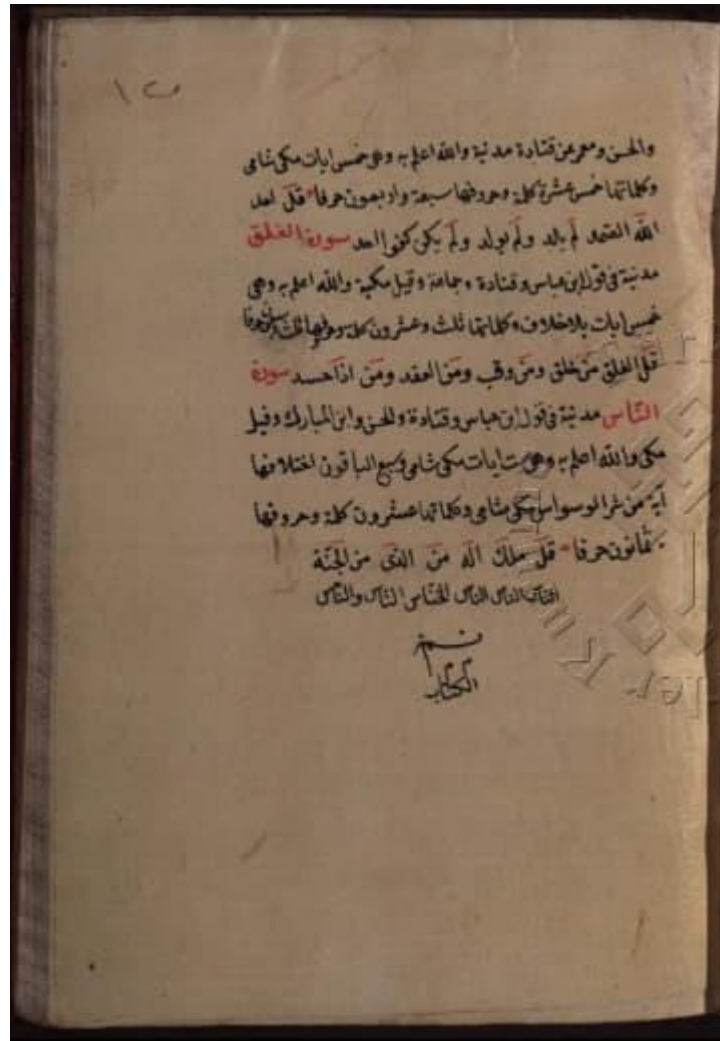 والحسن ومعمر عن قتادة مدنية والله اعلم به وهى خمس ايات مكى شامى
وكلماتها خمس عشرة كلمة وحروفها سبعة واربعون حرفا قل احد
الله الصمد لم يلد ولم يولد ولم يكن كفوا احد سورة الفلق
مدنية فى قول ابن عباس وقتادة وجماعة وقيل مكية والله اعلم به وهى
خمس ايات بلاخلاف وكلماتها ثلث وعشرون كلمة وحروفها ثلثة حرفا
قل الفلق من خلق ومن وقب ومن العقد ومن اذا حسد سورة
الناس مدنية فى قول ابن عباس وقتادة والحسن وابن المبارك وقيل
مكى والله اعلم به وهى ست ايات مكى شامى وسبع الباقون اختلافها
آية من شر الوسواس مكى شامى وكلماتها عشرون كلمة وحروفها
ثمانون حرفا قل ملك اله من الذى من الجنة
الناس الناس الخناس الناس والناس
تم
الكتاب